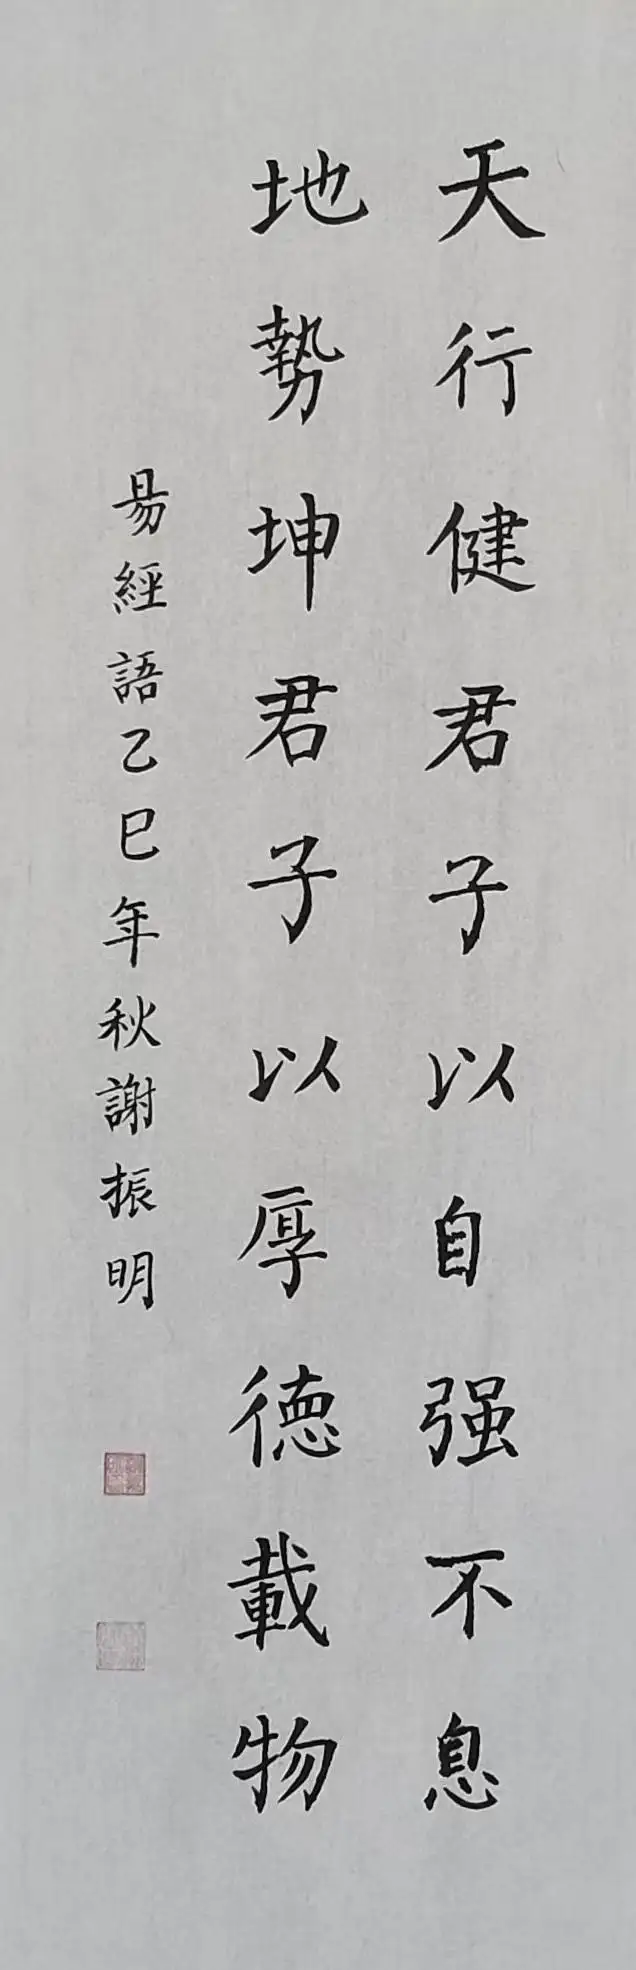 天行健君子以自强不息
地勢坤君子以厚德載物
易經語乙巳年秋謝振明